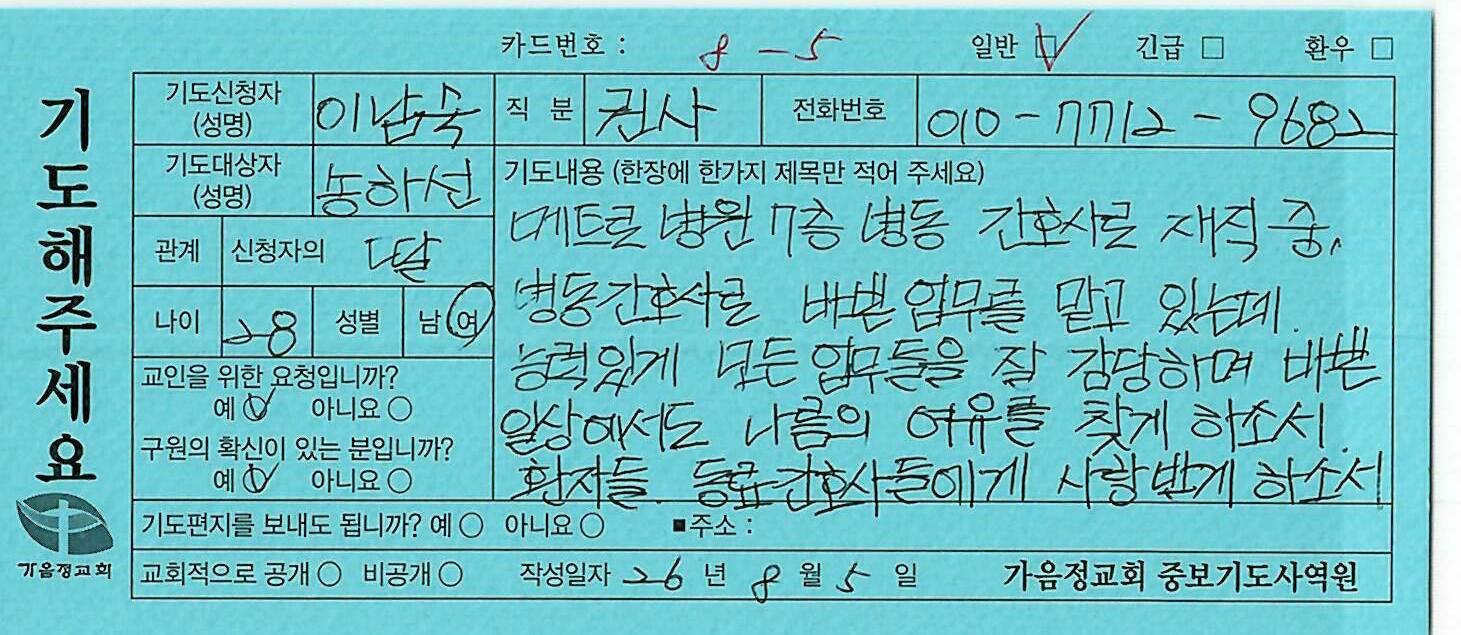 카드번호 : 8-5 일반 ☑ 긴급 □ 환우 □
기도해주세요
기도신청자 (성명) 이남숙 직 분 권사 전화번호 010-7712-9682
기도대상자 (성명) 농하선
관계 신청자의 딸
나이 28 성별 남 여
교인을 위한 요청입니까?
예 ○ 아니요 ○
구원의 확신이 있는 분입니까?
예 ○ 아니요 ○
기도내용 (한장에 한가지 제목만 적어 주세요)
메트로 병원 7층 병동 간호사로 재직 중,
병동간호사로 바쁜 업무를 맡고 있는데.
능력있게 모든 업무들을 잘 감당하며 바쁜
일상에서도 나름의 여유를 찾게 하소서.
환자들. 동료간호사들에게 사랑받게 하소서
기도편지를 보내도 됩니까? 예 ○ 아니요 ○ ■주소 :
교회적으로 공개 ○ 비공개 ○ 작성일자 26 년 8 월 5 일 가음정교회 중보기도사역원
가음정교회